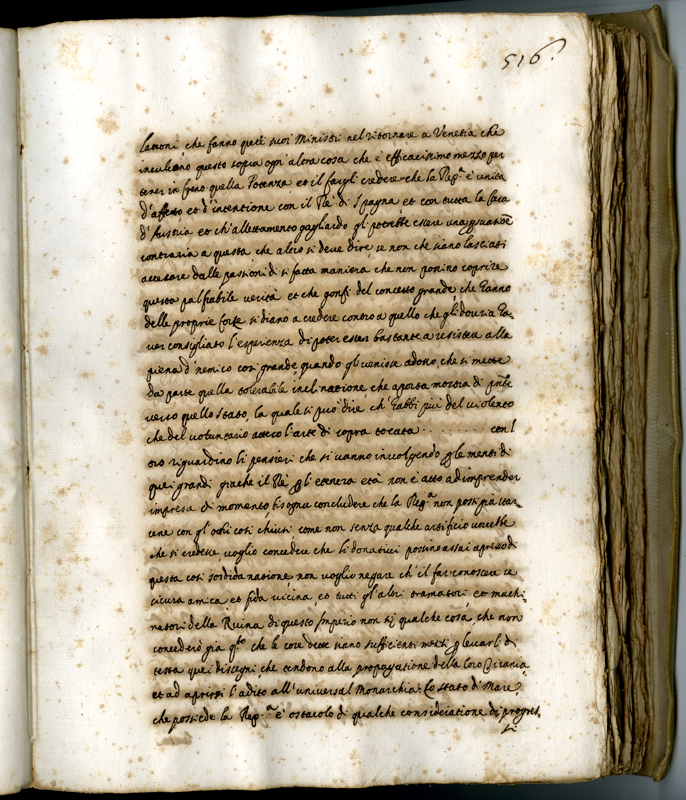 516.
lationi che fanno questi suoi Ministri nel ritornare a Venetia che
inculcano questo sopra ogn'altra cosa che è efficacissimo mezzo per
tener in freno quella Potenza et il fargli credere che la Rep.ca è unita
d'affetto et d'intentione con il Rè di Spagna et con tutta la Casa
d'Austria et ch'allettamento gagliardo gli potrebbe essere una
contraria a questa che altro si deve dire, se non che siano lasciati
acceccare dalle passioni di si fatta maniera, che non possino coprire
questa palpabile verità et che gonfi del concetto grande, che hanno
delle proprie forze si diano a credere contro a quello che gli douria ha-
ver consigliato l'esperienza di poter esser bastante a resistere alla
piena d'nemico così grande quando gli venisse adosso, che si mette
da parte quella tolerabile inclinatione, che aporta mostra di pnte
verso quello stato, la quale si può dire, ch'habbi più del violento
che del voluntario attero l'arte di sopra toccata . . . . . . . . con l
oro riguardino li pensieri che si vanno involgendo per le menti di
quei grandi giache il Rè per l'etenera età non è atto ad imprender
impresa di momento, bisogna concludere che la Rep.ca non possi più star-
sene con gl'occhi così chiusi come non senza qualche artificio
che si credesse, voglio concedere che li donativi possino assai apresso di
questa così sordida natione, non voglio negare ch'il far conoscere se
sicura amica et fida vicina, et tutti gl'altri tramatori et machi-
natori della Ruina di questo Imperio non sij qualche cosa, che non
concederò già q.to che le cose dette siano sufficienti per levarli di
testa quei disegni che tendono alla propagatione della loro Tirania
et ad aprirsi l'adito all'universal Monarchia. Lo stato di Mare,
che possiede la Rep.ca è ostacolo di qualche consideratione di progres-